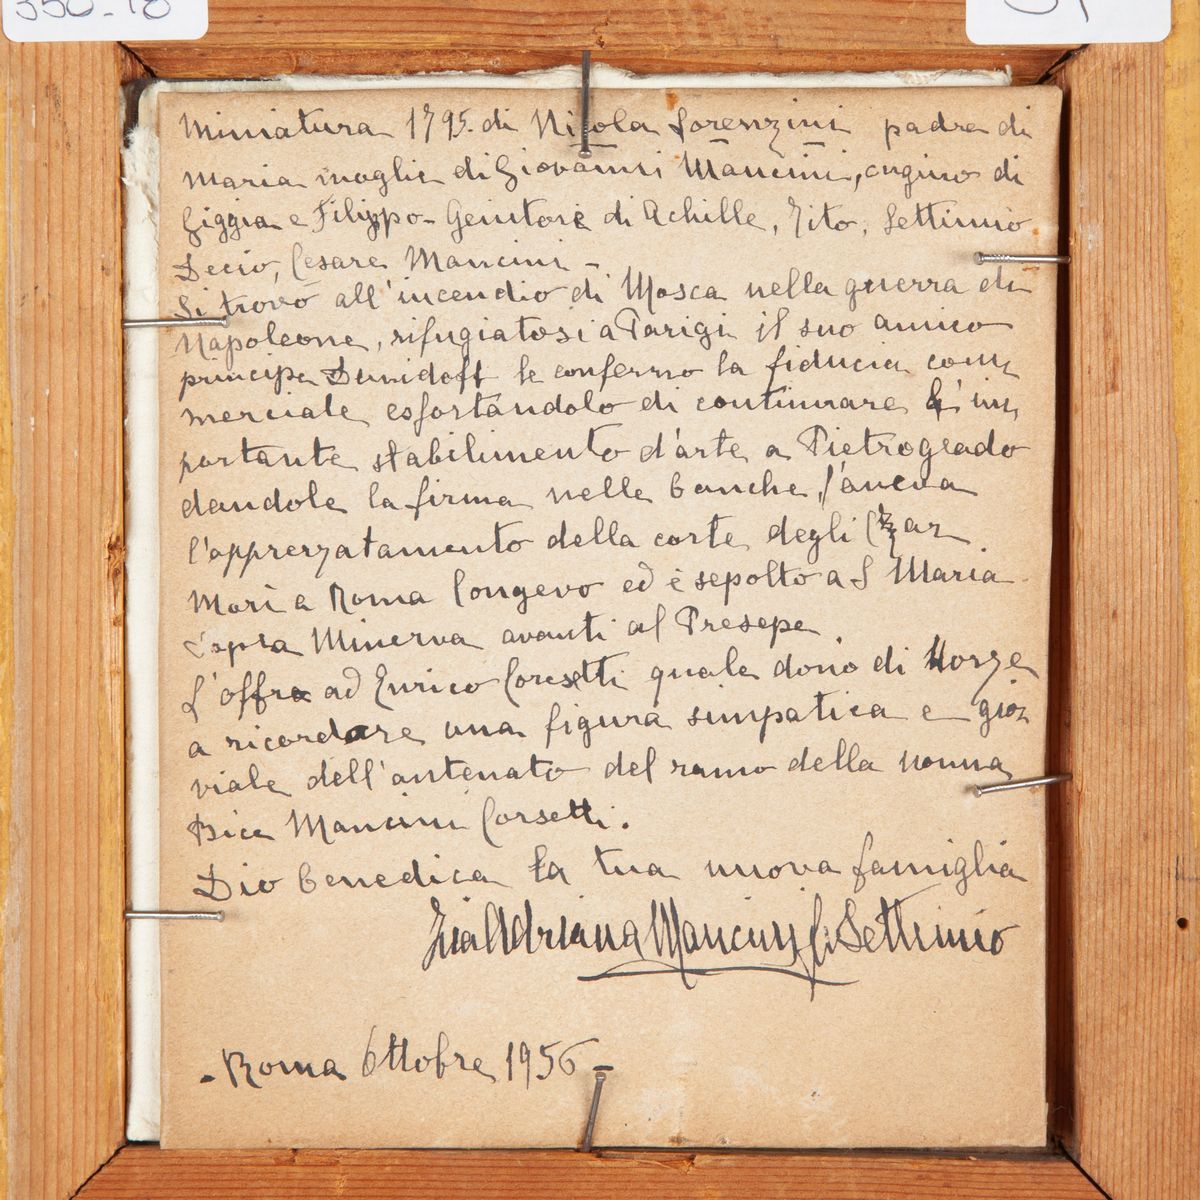 Miniatura 1795. di Nicola Lorenzini padre di
Maria moglie di Giovanni Mancini, cugino di
Giggia e Filippo - Genitori di Achille, Tito, Settimio
Decio, Cesare Mancini -
Si trovò all'incendio di Mosca nella guerra di
Napoleone, rifugiatosi a Parigi il suo amico
principe Demidoff le confermò la fiducia com=
merciale esfortandolo di continuare l'im=
portante stabilimento d'arte a Pietrogrado
dandole la firma nelle banche, l'aveva
l'apprezzatamento della corte degli Czar.
Morì a Roma longevo ed è sepolto a S Maria
sopra Minerva avanti al Presepe.
L'offro ad Enrico Corsetti quale dono di Nozze
a ricordare una figura simpatica e gio=
viale dell'antenato del ramo della nonna
Bice Mancini Corsetti.
Dio benedica la tua nuova famiglia
Zia Adriana Mancini fu Settimio
- Roma Ottobre 1956 -